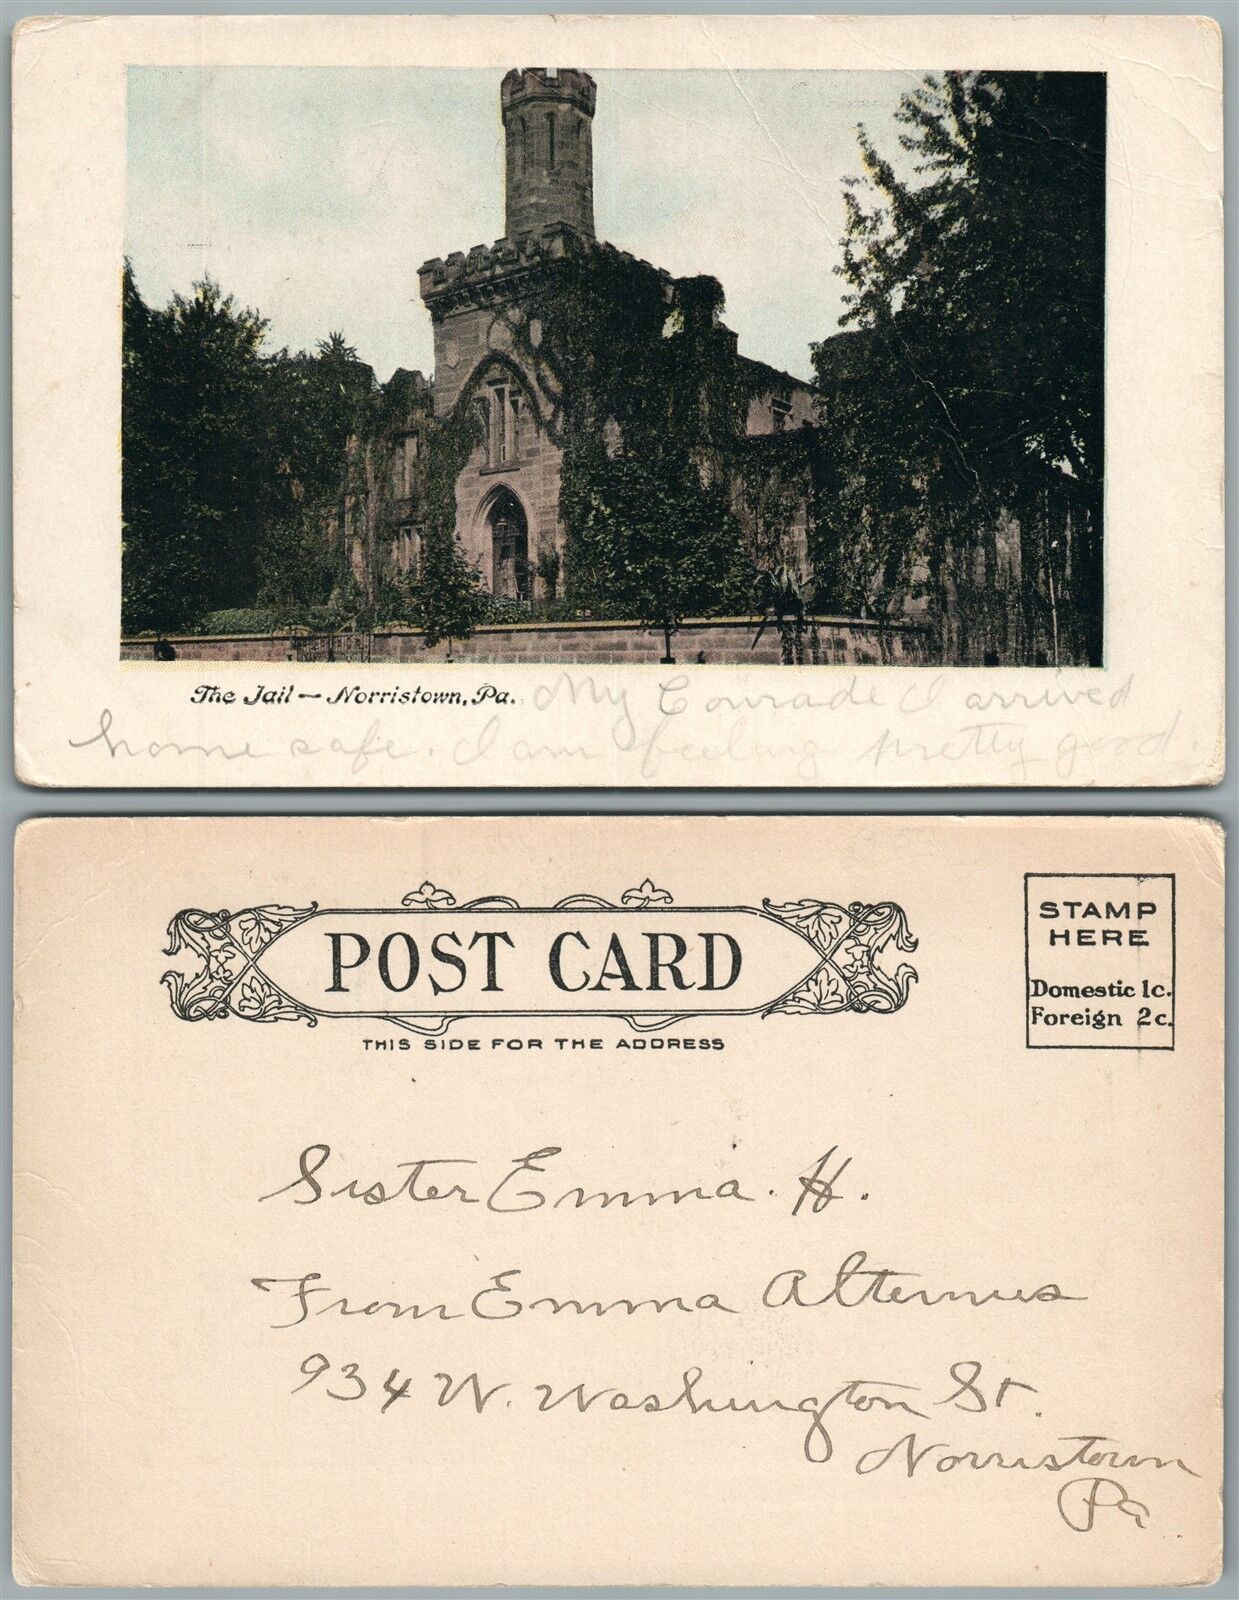 The Jail — Norristown, Pa. My Comrade I arrived
home safe. I am feeling pretty good.
POST CARD
THIS SIDE FOR THE ADDRESS
STAMP
HERE
Domestic 1c.
Foreign 2c.
Sister Emma. H.
From Emma Altemus
934 W. Washington St.
Norristown
Pa